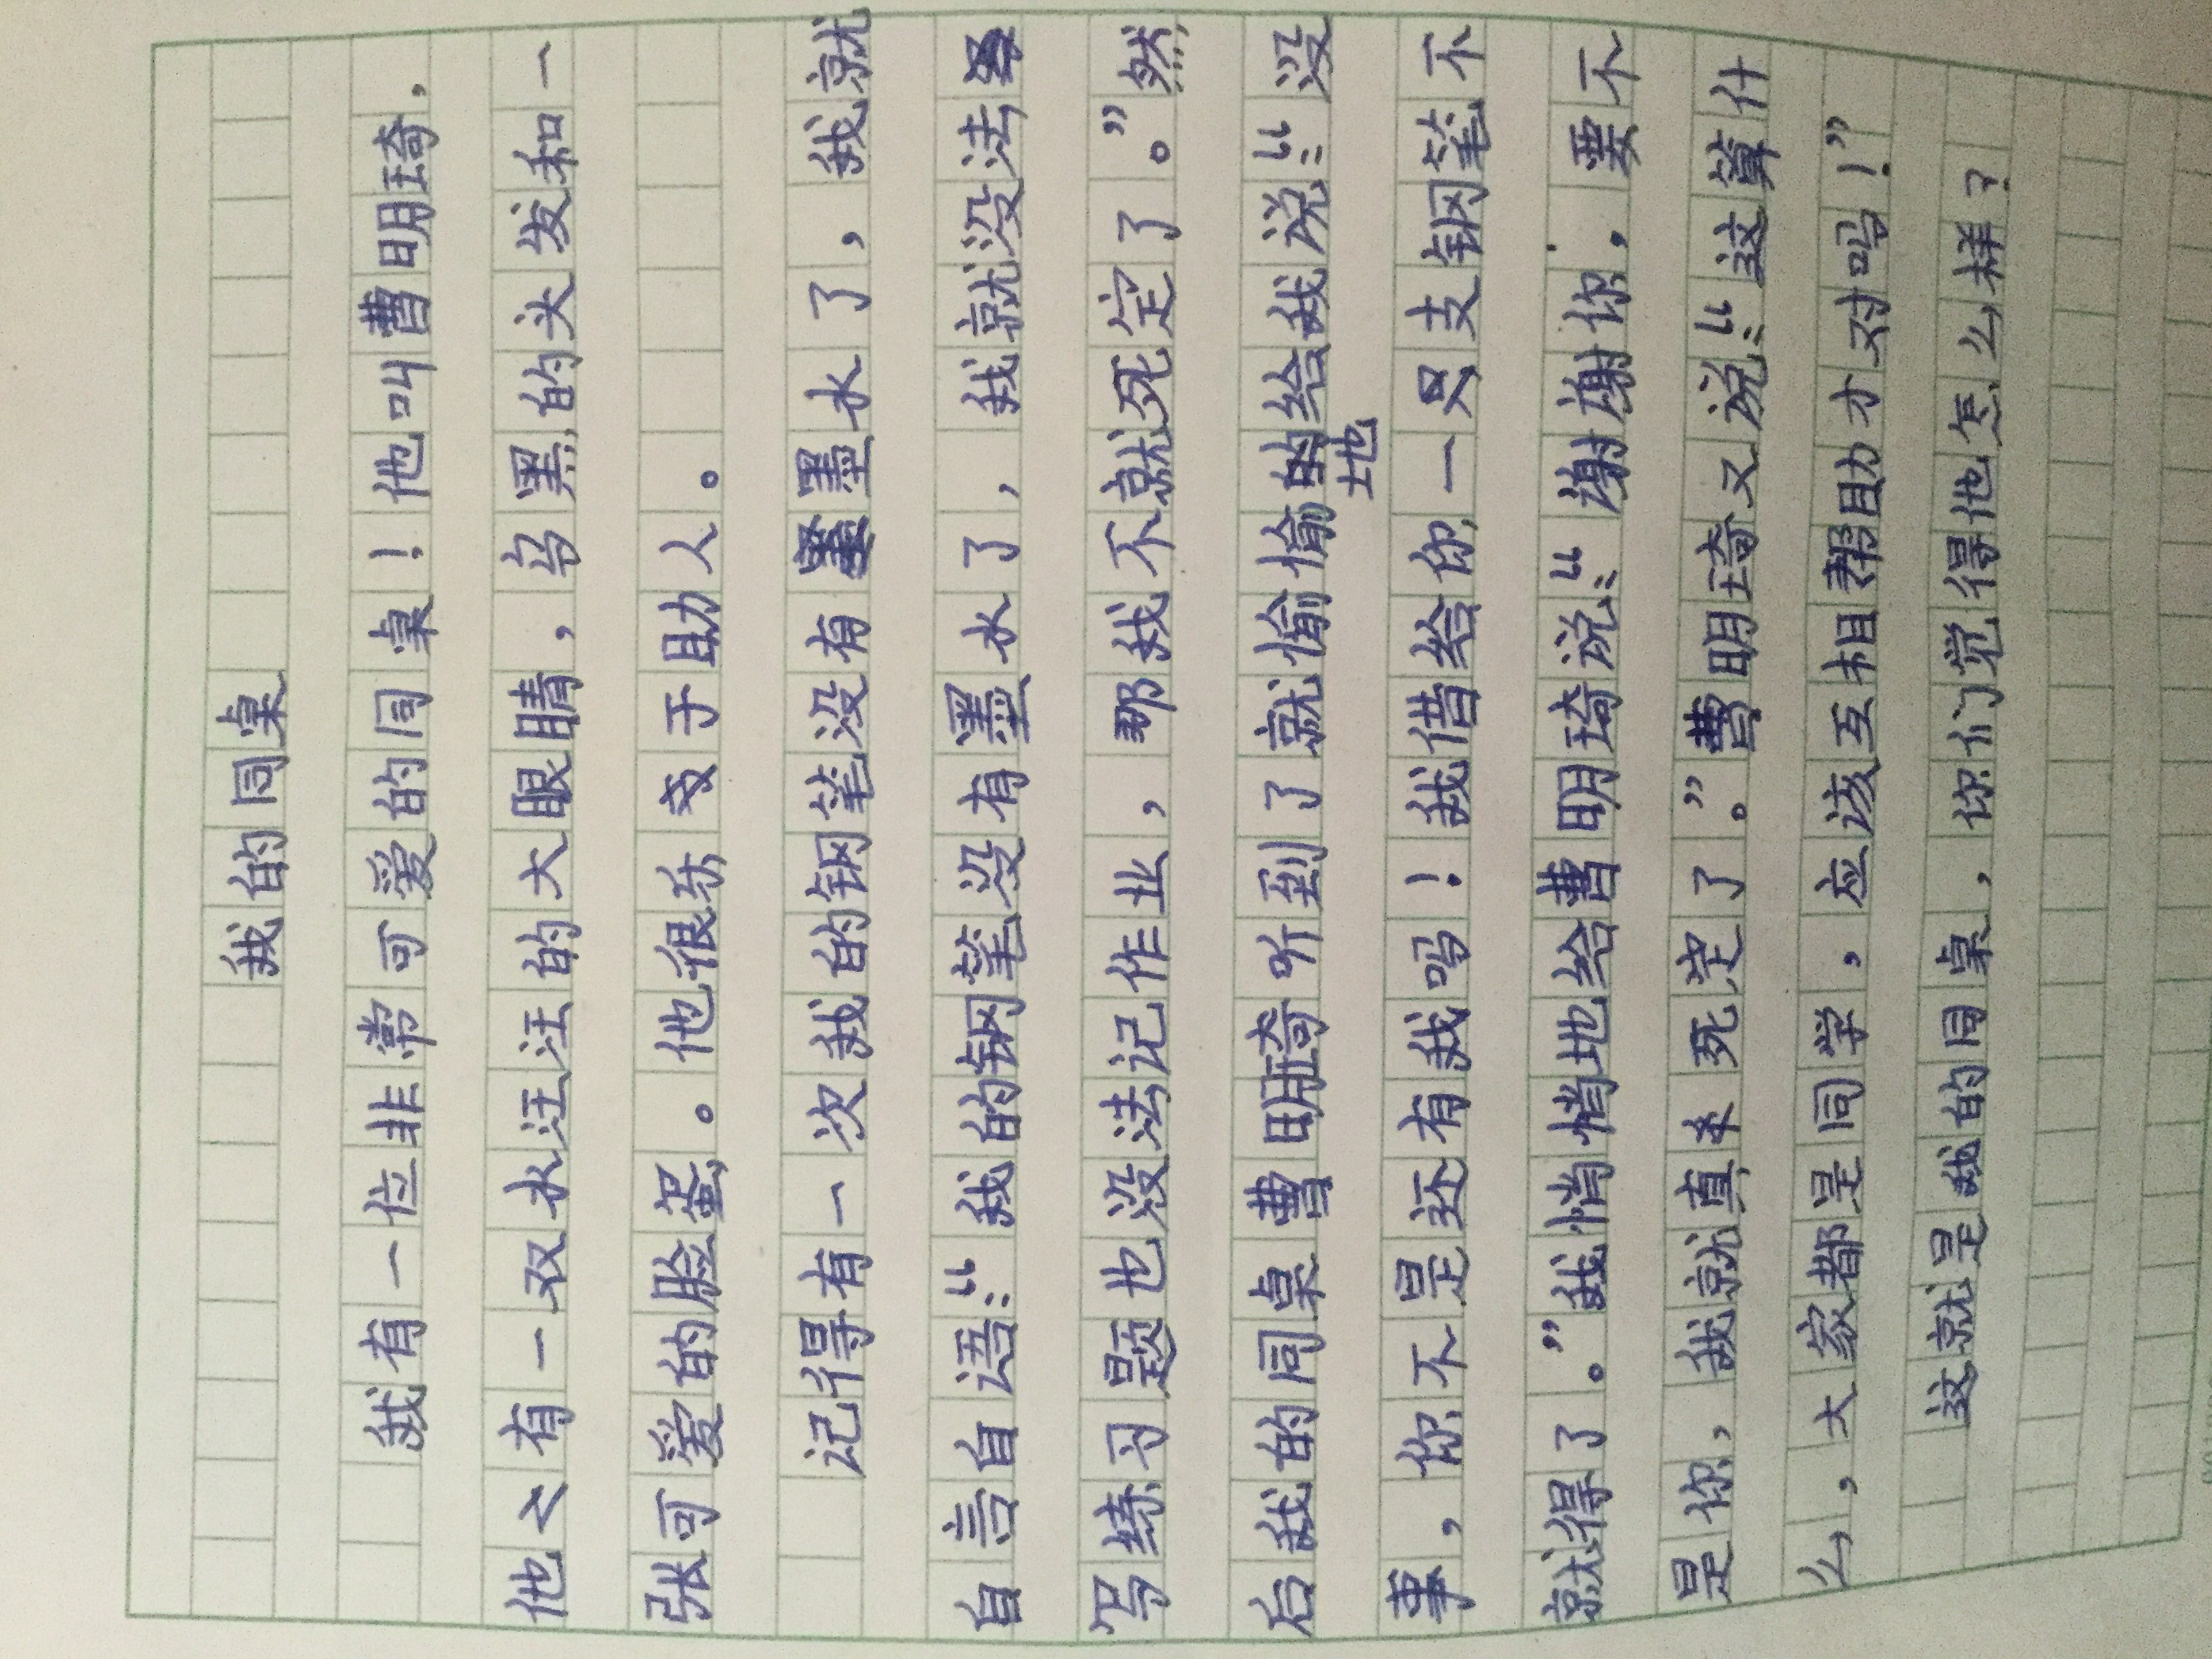 我的同桌
我有一位非常可爱的同桌！他叫曹明琦，
他有一双水汪汪的大眼睛，乌黑的头发和一
张可爱的脸蛋。他很乐于助人。
记得有一次我的钢笔没有墨水了，我就
自言自语：“我的钢笔没有墨水了，我就没法
写练习题也没法记作业，那我不就死定了。”然
后我的同桌曹明琦听到了就偷偷地给我说：“没
事，你不是还有我吗！我借给你一只支钢笔不
就得了。”我悄悄地给曹明琦说：“谢谢你，要不
是你，我就真死定了。”曹明琦又说：“这算什
么，大家都是同学，应该互相帮助才对吗！”
这就是我的同桌，你们觉得他怎么样？